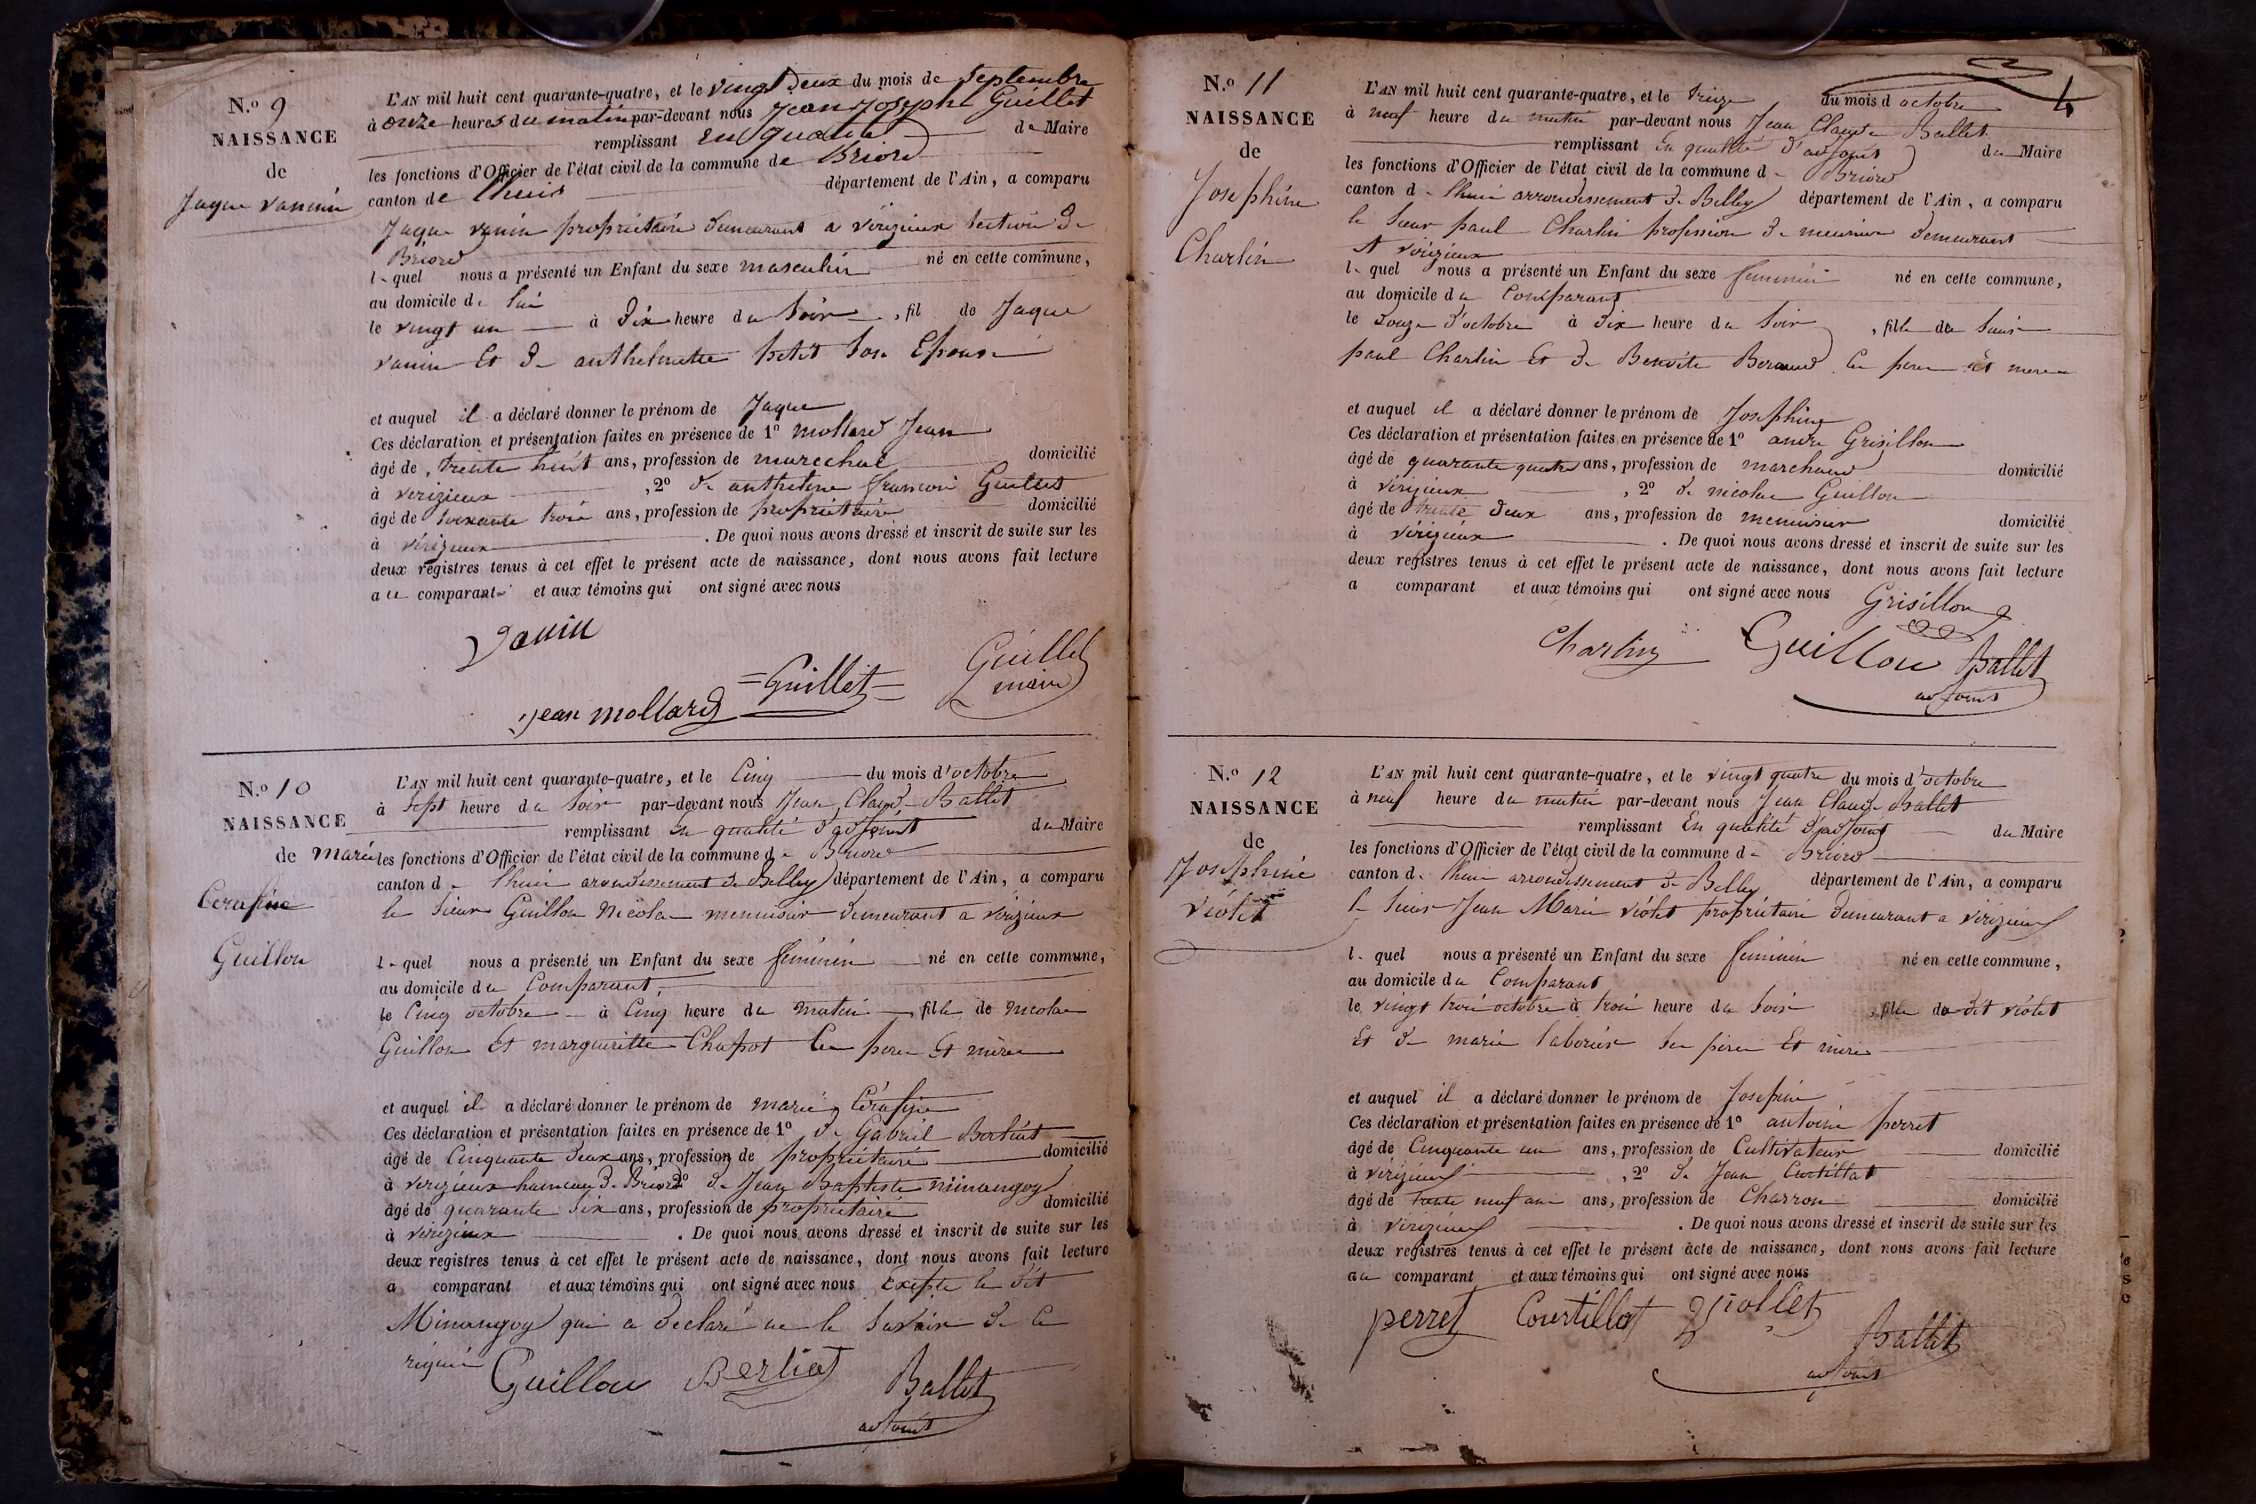 N.º 9
NAISSANCE
de
Jaque vanin
L'AN mil huit cent quarante-quatre, et le vingt Deux du mois de Septembre
à onze heures du matin par-devant nous Jean Joseph Guillet
remplissant en qualité de Maire
les fonctions d'Officier de l'état civil de la commune de Briord
canton de Lhuis département de l'Ain, a comparu
Jaque vanin propriétaire demeurant a vérizieux section de
Briord
lequel nous a présenté un Enfant du sexe masculin né en cette commune,
au domicile de lui
le vingt un à dix heure du soir, fil de Jaque
vanin Et de anthelmette petit son Epouse
et auquel il a déclaré donner le prénom de Jaque
Ces déclaration et présentation faites en présence de 1º mollard Jean
âgé de trente huit ans, profession de marechal domicilié
à verizieux, 2º de anthelme françois Guillet
âgé de soixante trois ans, profession de propriétaire domicilié
à vérizieux. De quoi nous avons dressé et inscrit de suite sur les
deux registres tenus à cet effet le présent acte de naissance, dont nous avons fait lecture
au comparant et aux témoins qui ont signé avec nous
vanin
Jean mollard Guillet Guillet
maire
N.º 10
NAISSANCE
de marie
Cerafine
Guillon
L'AN mil huit cent quarante-quatre, et le Cinq du mois d'octobre
à Sept heure du Soir par-devant nous Jean Claude Ballet
remplissant En qualité d'adjoint du Maire
les fonctions d'Officier de l'état civil de la commune de Briord
canton de Lhuis arondissement de Belley département de l'Ain, a comparu
le Sieur Guillon Nicola menuisier demeurant a vérizieux
lequel nous a présenté un Enfant du sexe féminin né en cette commune,
au domicile du Comparant,
le Cinq octobre à Cinq heure du matin, fille de Nicola
Guillon Et margueritte Chapot Ce pere Et mère
et auquel il a déclaré donner le prénom de marie Cérafine
Ces déclaration et présentation faites en présence de 1º de Gabriel Berliat
âgé de Cinquante deux ans, profession de propriétaire domicilié
à verizieux hameau de Briord 2º de Jean Baptiste minangoy
âgé de quarante Six ans, profession de propriétaire domicilié
à verizieux. De quoi nous avons dressé et inscrit de suite sur les
deux registres tenus à cet effet le présent acte de naissance, dont nous avons fait lecture
a comparant et aux témoins qui ont signé avec nous Exepte le dit
Minangoy qui a déclaré ne le savoir de ce
requi
Guillon Berliat Ballet
adjoint
4
N.º 11
NAISSANCE
de
Josephine
Charlin
L'AN mil huit cent quarante-quatre, et le treize du mois d octobre
à neuf heure du matin par-devant nous Jean Claude Ballet
remplissant En qualité d'adjoint du Maire
les fonctions d'Officier de l'état civil de la commune de Briord
canton de Lhuis arrondissement de Belley département de l'Ain, a comparu
le Sieur paul Charlin profession de meunier demeurant
A vérizieux
lequel nous a présenté un Enfant du sexe feminin né en cette commune,
au domicile du Comparant
le Douze d'octobre à Dix heure du Soir, fille du Sieur
paul Charlin Et de Benoite Beraud Ce pere et mere
et auquel il a déclaré donner le prénom de Josephine
Ces déclaration et présentation faites en présence de 1º andre Grisillon
âgé de quarante quatre ans, profession de marchand domicilié
à vérizieux, 2º de nicolas Guillon
âgé de trente deux ans, profession de menuisier domicilié
à vérizieux. De quoi nous avons dressé et inscrit de suite sur les
deux registres tenus à cet effet le présent acte de naissance, dont nous avons fait lecture
a comparant et aux témoins qui ont signé avec nous Grisillon
Charlin Guillon Ballet
adjoint
N.º 12
NAISSANCE
de
Josephine
violet
L'AN mil huit cent quarante-quatre, et le vingt quatre du mois d'octobre
à neuf heure du matin par-devant nous Jean Claude Ballet
remplissant En qualité d'adjoint du Maire
les fonctions d'Officier de l'état civil de la commune de Briord
canton de Lhuis arrondissement de Belley département de l'Ain, a comparu
le Sieur Jean Marie violet propriétaire demeurant a vérizieux
lequel nous a présenté un Enfant du sexe féminin né en cette commune,
au domicile du Comparant
le vingt trois octobre à trois heure du Soir, fille du dit violet
Et de marie laborier Ses père Et mère
et auquel il a déclaré donner le prénom de Josephine
Ces déclaration et présentation faites en présence de 1º antoine perret
âgé de Cinquante un ans, profession de Cultivateur domicilié
à vérizieux, 2º de Jean Curtillat
âgé de trente neuf an ans, profession de Charron domicilié
à vérizieux. De quoi nous avons dressé et inscrit de suite sur les
deux registres tenus à cet effet le présent acte de naissance, dont nous avons fait lecture
au comparant et aux témoins qui ont signé avec nous
perret Courtillat Viollet Ballet
adjoint